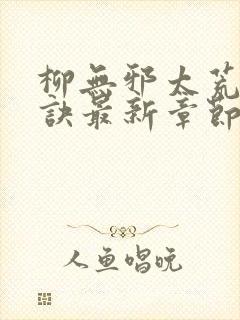 柳無邪太荒
訣最新章節
人魚唱晚